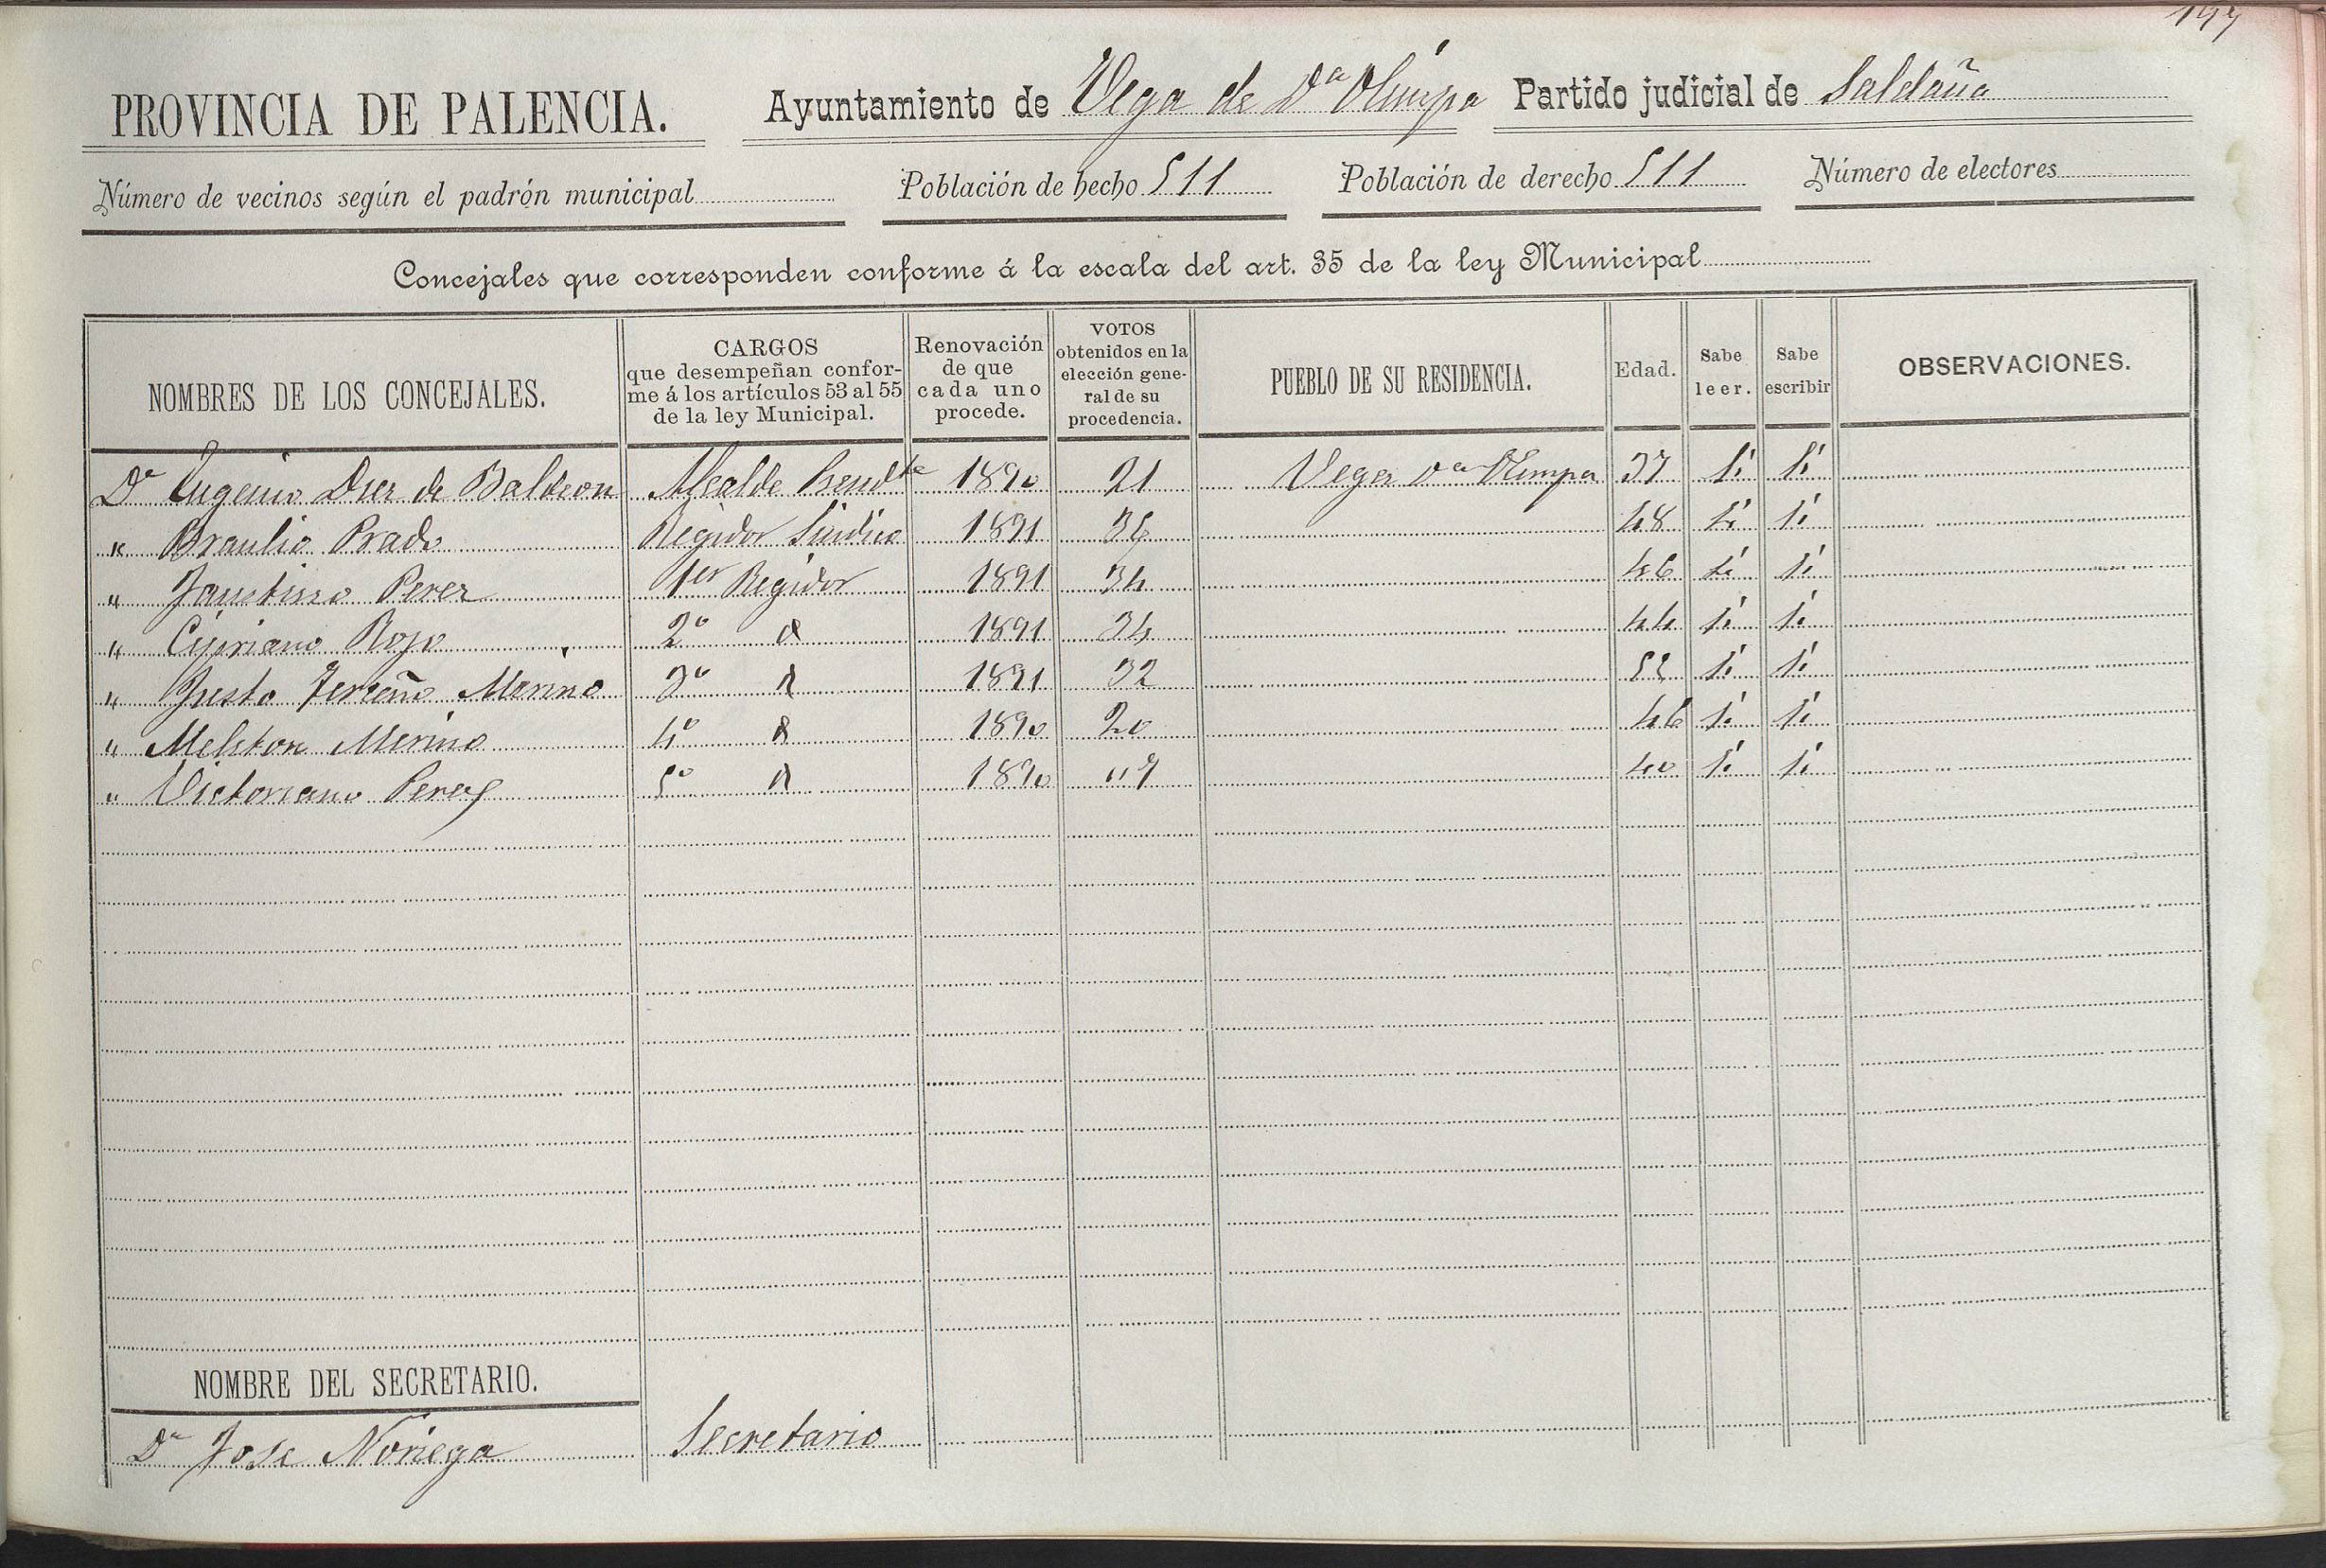 PROVINCIA DE PALENCIA. Ayuntamiento de Vega de Dª Olimpa Partido judicial de Saldaña
Número de vecinos según el padrón municipal Población de hecho 511 Población de derecho 511 Número de electores
Concejales que corresponden conforme á la escala del art. 35 de la ley Municipal
NOMBRES DE LOS CONCEJALES. CARGOS que desempeñan conforme á los artículos 53 al 55 de la ley Municipal. Renovación de que cada uno procede. VOTOS obtenidos en la elección general de su procedencia. PUEBLO DE SU RESIDENCIA. Edad. Sabe leer. Sabe escribir OBSERVACIONES.
Dn Eugenio Diez de Baldeon Alcalde Presidte 1890 21 Vega Dª Olimpa 37 Si Si
" Braulio Prado Regidor Sindico 1891 48 Si Si
" Faustino Perez 1er Regidor 1891 34 46 Si Si
" Cipriano Rojo 2º 1891 34 44 Si Si
" Justo Merino 3º 1891 32 Si Si
" Meliton Merino 4º 1890 20 46 Si Si
" Victoriano Perez 5º 1890 40 Si Si
NOMBRE DEL SECRETARIO.
Dn Jose Noriega Secretario